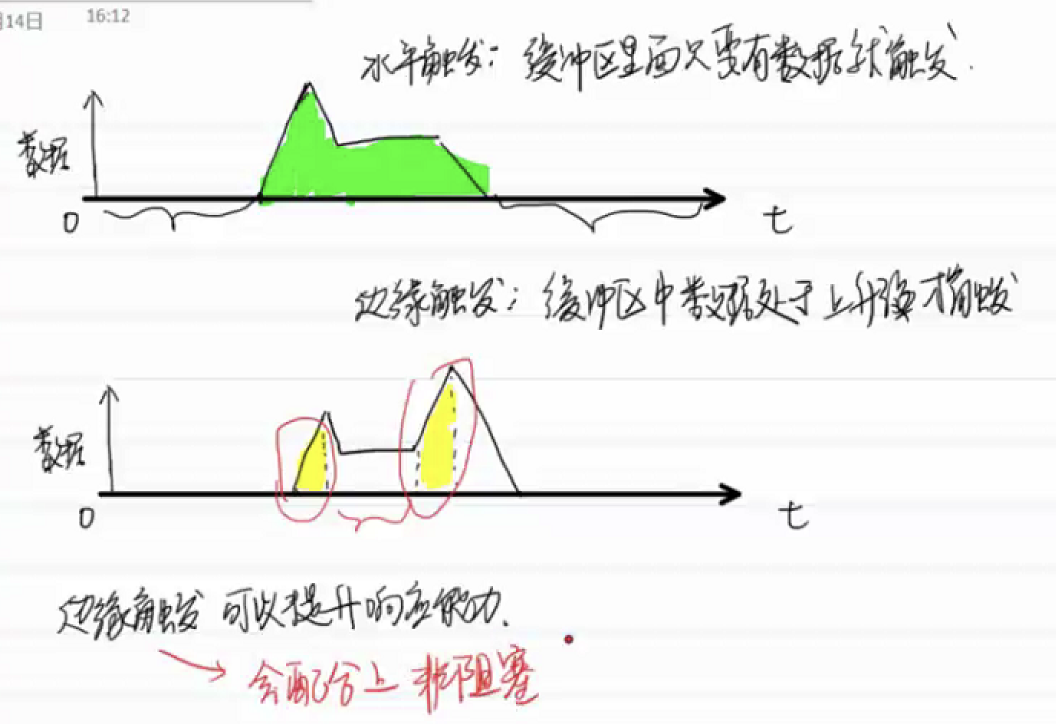 月14日 16:12
水平触发: 缓冲区里面只要有数据就触发.
数据
0
t
边缘触发: 缓冲区中数据处于上升沿才触发
数据
0
t
边缘触发 可以提升响应能力.
会配合上 非阻塞